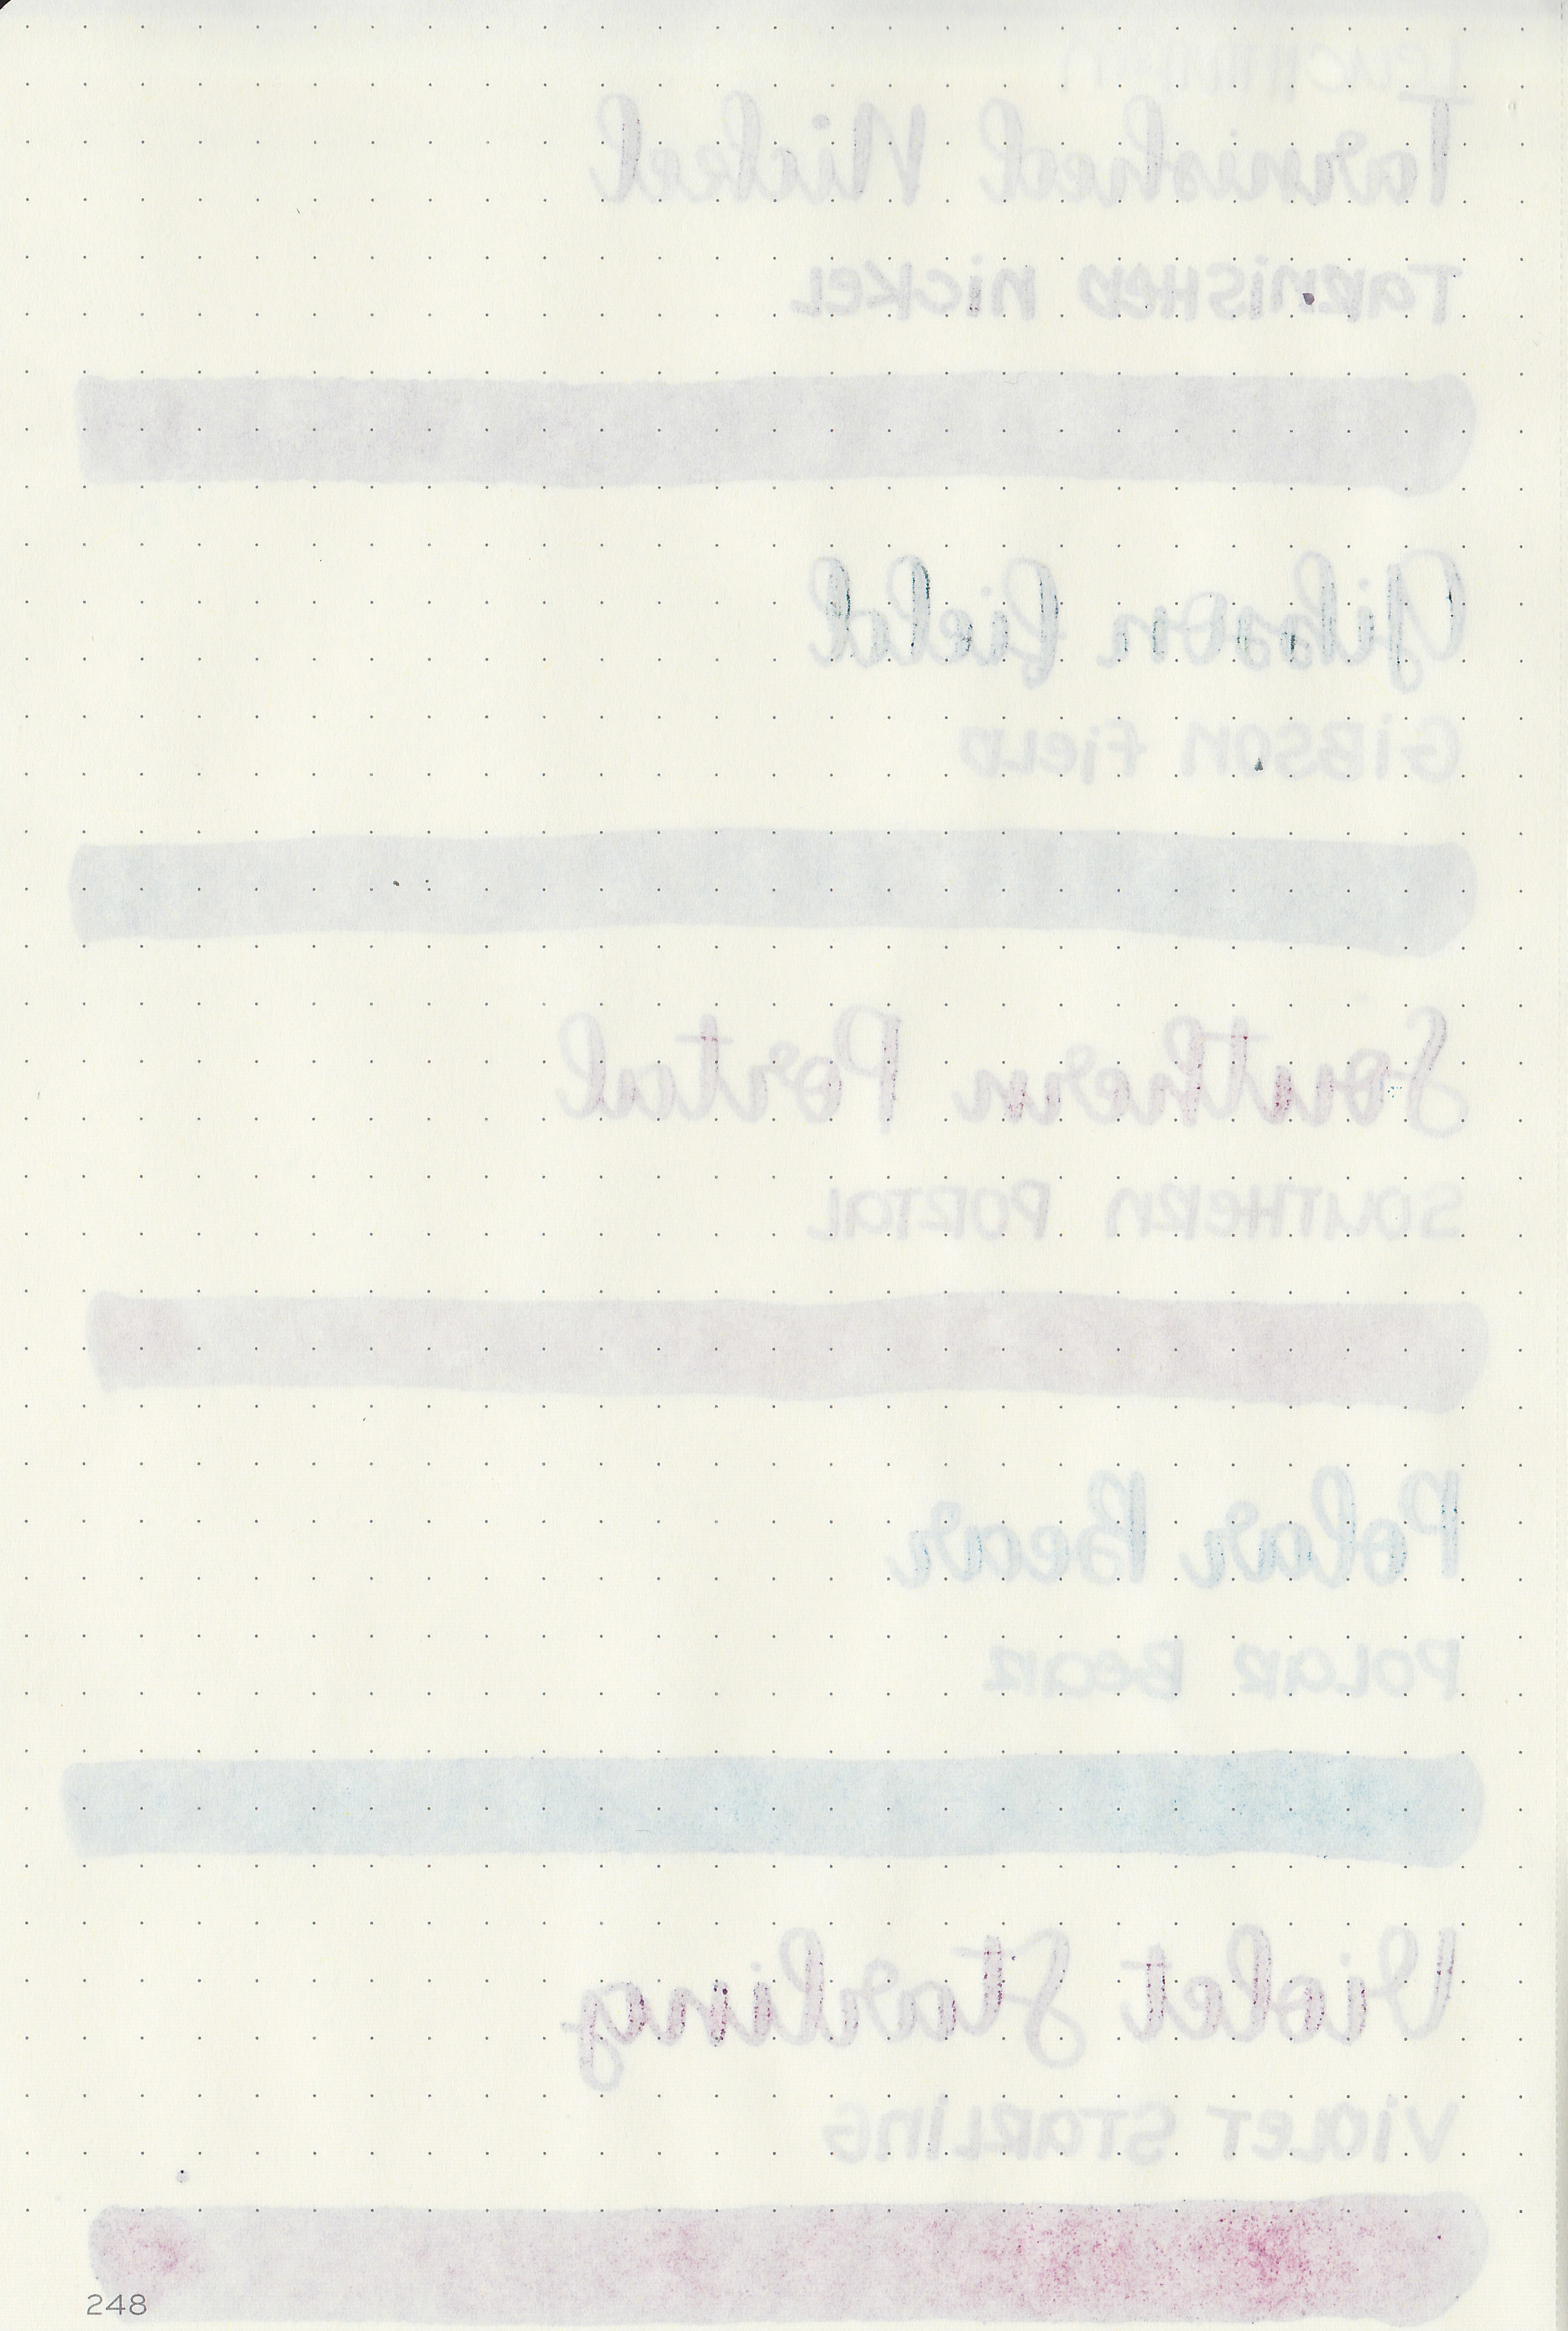 Leuchtturm
Tarnished Nickel
TARNISHED NICKEL
Gibson Field
GIBSON FIELD
Southern Portal
SOUTHERN PORTAL
Polar Bear
POLAR BEAR
Violet Starling
VIOLET STARLING
248